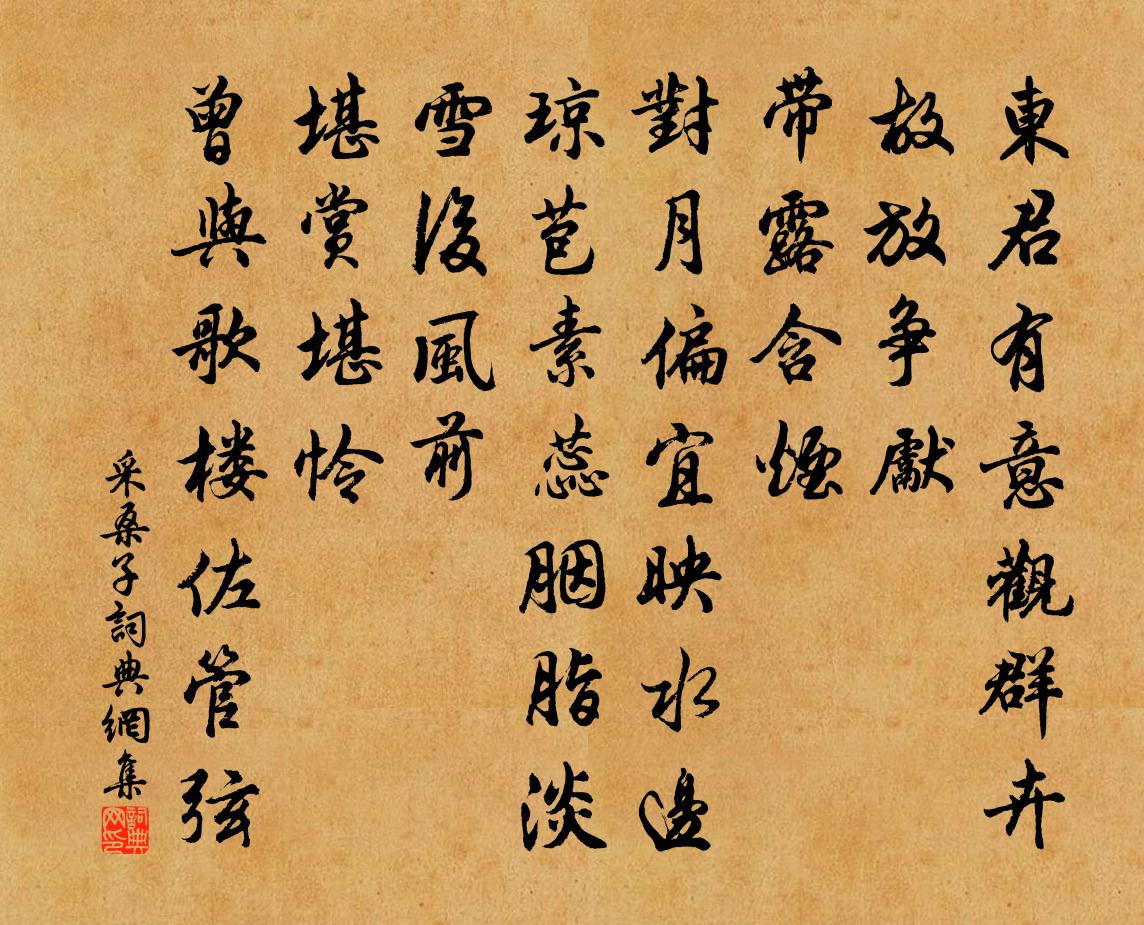 東君有意觀群卉
故放争獻
带露含煙
對月偏宜映水邊
琼苞素蕊胭脂淡
雪後風前
堪賞堪怜
曾與歌楼佐管弦
采桑子詞典網集
詞典网印